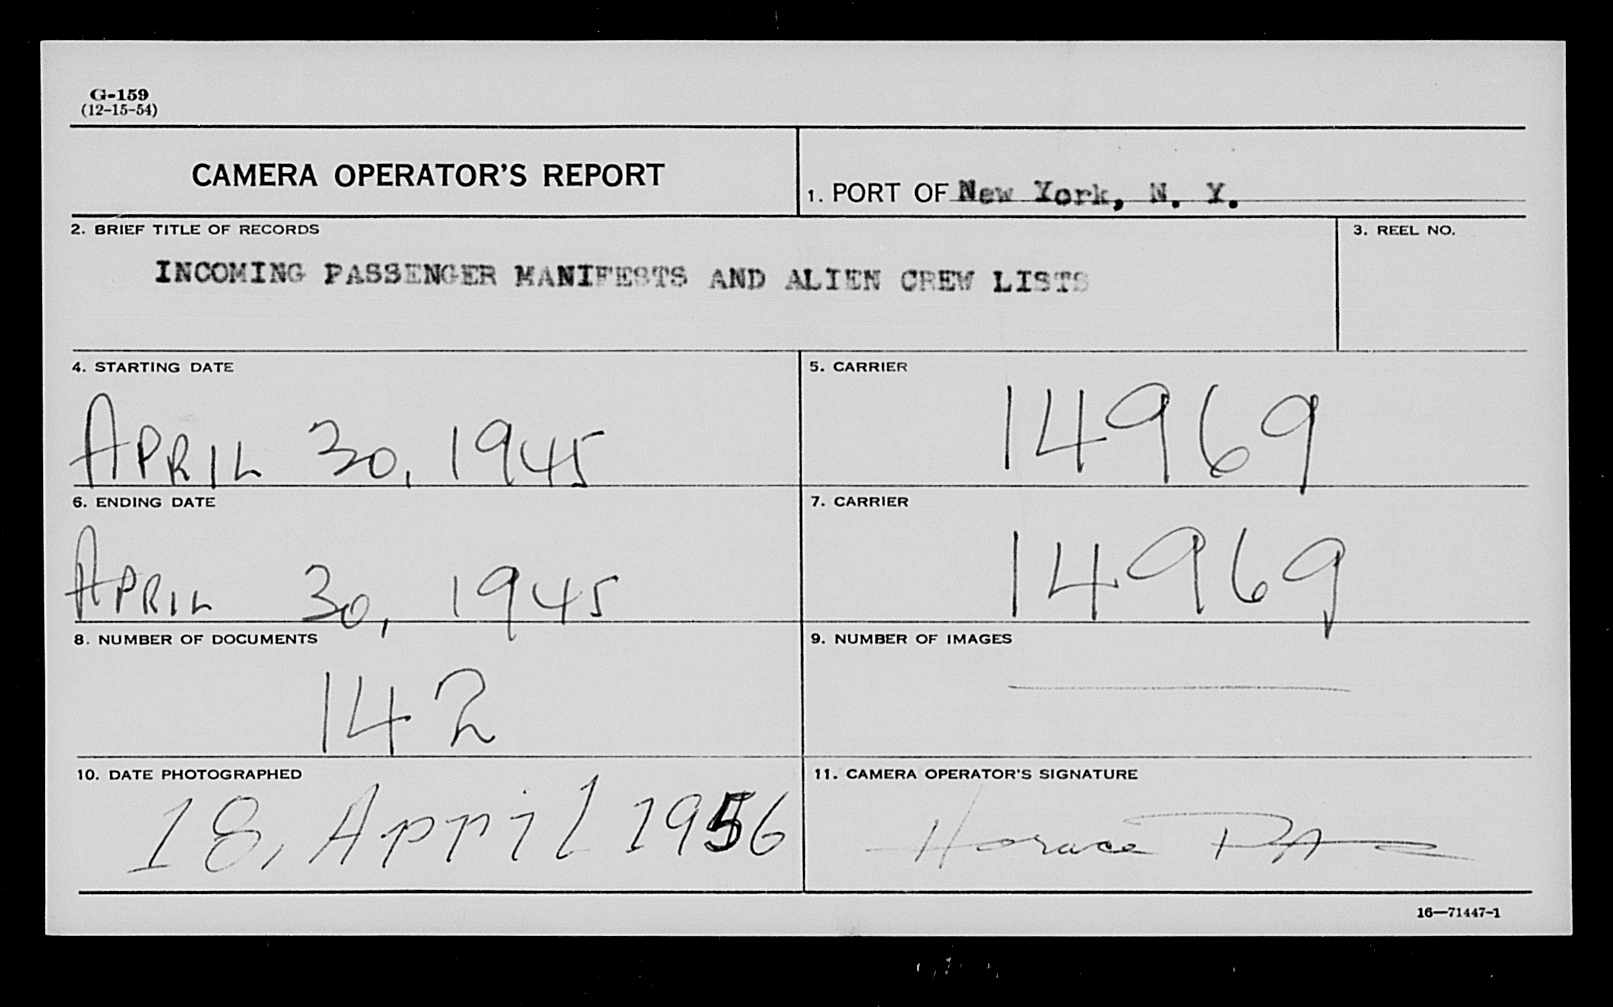 G-159
(12-15-54)
CAMERA OPERATOR'S REPORT
1. PORT OF New York, N. Y.
2. BRIEF TITLE OF RECORDS
INCOMING PASSENGER MANIFESTS AND ALIEN CREW LISTS
3. REEL NO.
4. STARTING DATE
APRIL 30, 1945
5. CARRIER
14969
6. ENDING DATE
APRIL 30, 1945
7. CARRIER
14969
8. NUMBER OF DOCUMENTS
142
9. NUMBER OF IMAGES
10. DATE PHOTOGRAPHED
18, April 1956
11. CAMERA OPERATOR'S SIGNATURE
Horace
16—71447-1